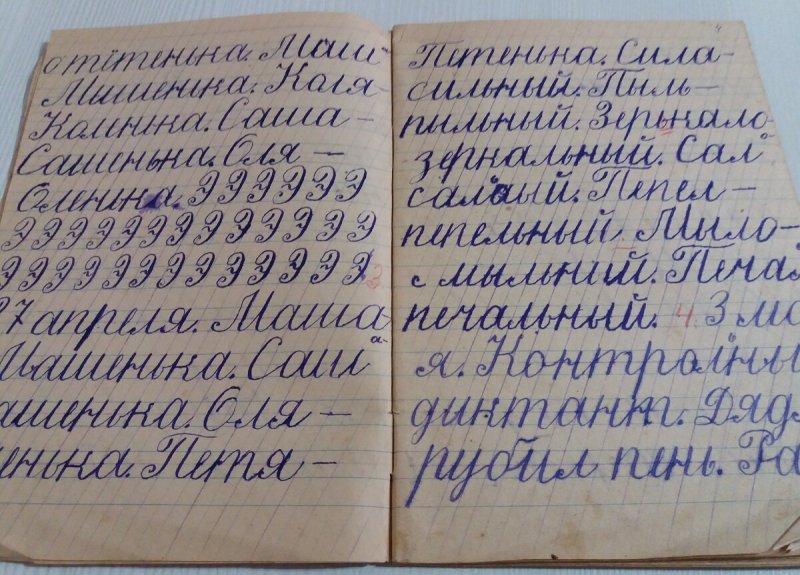 тётенька. Маша
Мишенька. Коля-
Коленька. Саша-
Сашенька. Оля —
Оленька. Э Э Э Э Э Э
Э Э Э Э Э Э Э Э Э Э Э Э Э
Э Э Э Э Э Э Э Э Э Э Э Э Э 3
27 апреля. Маша-
Машенька. Саша-
ашенька. Оля —
енька. Петя —
Петенька. Сила-
сильный. Пыль-
пыльный. Зерькало-
зеркальный. Сало
сальный. Пепел-
пепельный. Мыло-
мыльний. Печал
печальный. 4. 3 ма
я. Контролны
диктант. Дядя
рубил пень. Ра